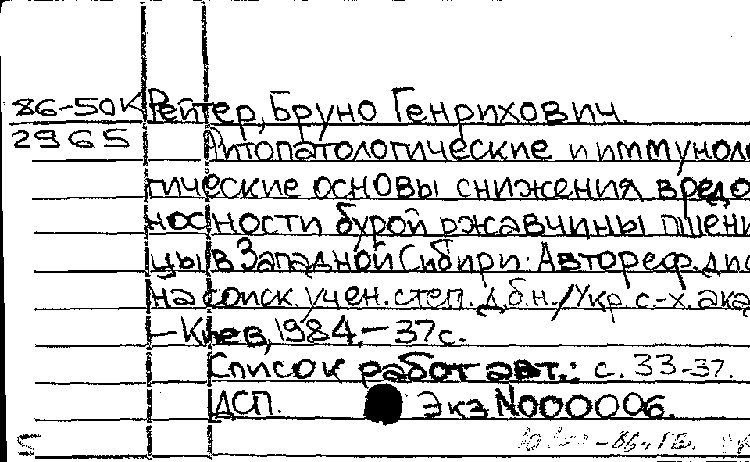 86-50К Рейтер, Бруно Генрихович.
2965 Фитопатологические и иммуноло
гические основы снижения вредо
носности бурой ржавчины пшени
цы в Западной Сибири: Автореф. дис
на соиск. учен. степ. д.б.н./Укр с.-х. ака
— Киев, 1984. — 37с.
Список работ авт.: с. 33-37.
ДСП. Экз N000006.
5